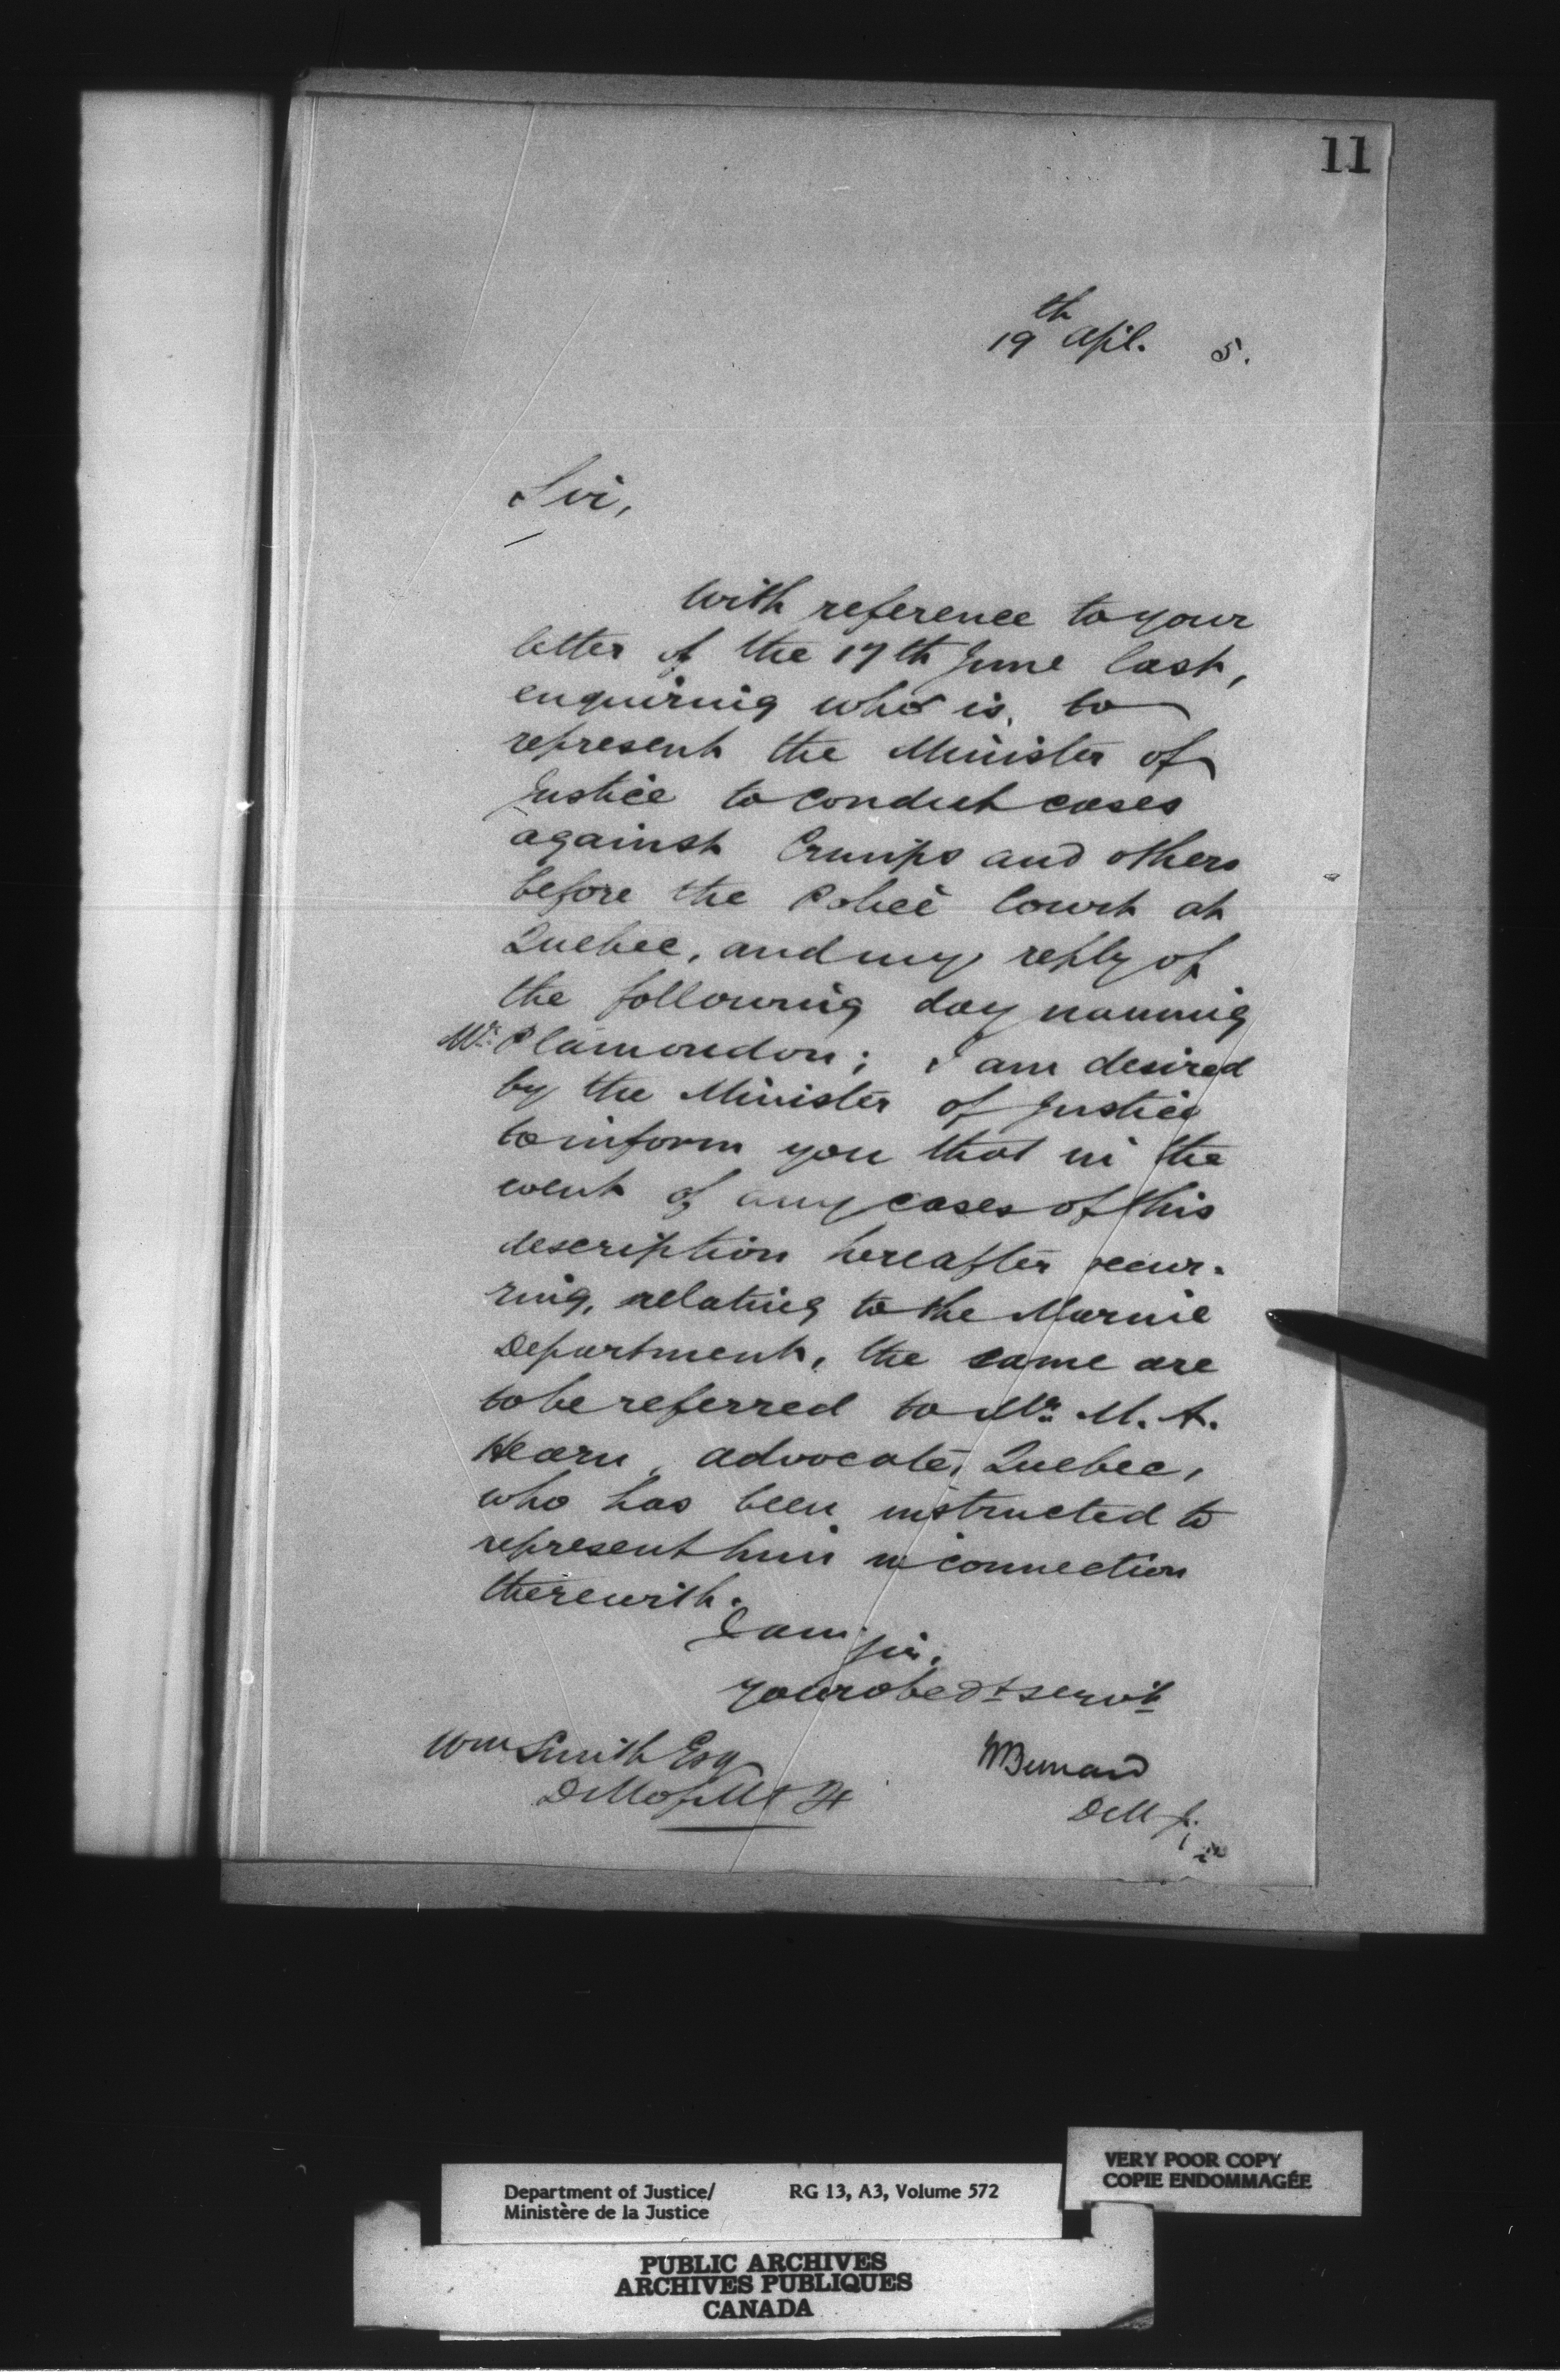 11
19th April. 5.
Sir,
With reference to your
letter of the 17th June last,
enquiring who is to
represent the Minister of
Justice to conduct cases
against Crimps and others
before the Police Court at
Quebec, and my reply of
the following day naming
Mr. Plamondon; I am desired
by the Minister of Justice
to inform you that in the
event of any cases of this
description hereafter occur-
ring, relating to the Marine
Department, the same are
to be referred to Mr. M. A.
Hearn, advocate, Quebec,
who has been instructed to
represent him in connection
therewith.
I am Sir,
Your obedt servt
Wm Smith Esq
H Bernard
D M of M & F
D M J.
Department of Justice/ RG 13, A3, Volume 572
Ministère de la Justice
VERY POOR COPY
COPIE ENDOMMAGÉE
PUBLIC ARCHIVES
ARCHIVES PUBLIQUES
CANADA